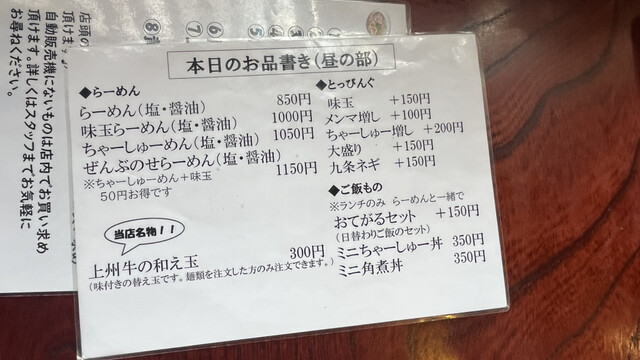 本日のお品書き(昼の部)
◆らーめん
らーめん(塩・醤油) 850円
味玉らーめん(塩・醤油) 1000円
ちゃーしゅーめん(塩・醤油) 1050円
ぜんぶのせらーめん(塩・醤油) 1150円
※ちゃーしゅーめん+味玉
50円お得です
当店名物!!
上州牛の和え玉 300円
(味付きの替え玉です。麺類を注文した方のみ注文できます。)
◆とっぴんぐ
味玉 +150円
メンマ増し +100円
ちゃーしゅー増し +200円
大盛り +150円
九条ネギ +150円
◆ご飯もの
※ランチのみ らーめんと一緒で
おてがるセット +150円
(日替わりご飯のセット)
ミニちゃーしゅー丼 350円
ミニ角煮丼 350円
店頭の
頂けます
自動販売機にないものは店内でお買い求め
頂けます。詳しくはスタッフまでお気軽に
お尋ねください。